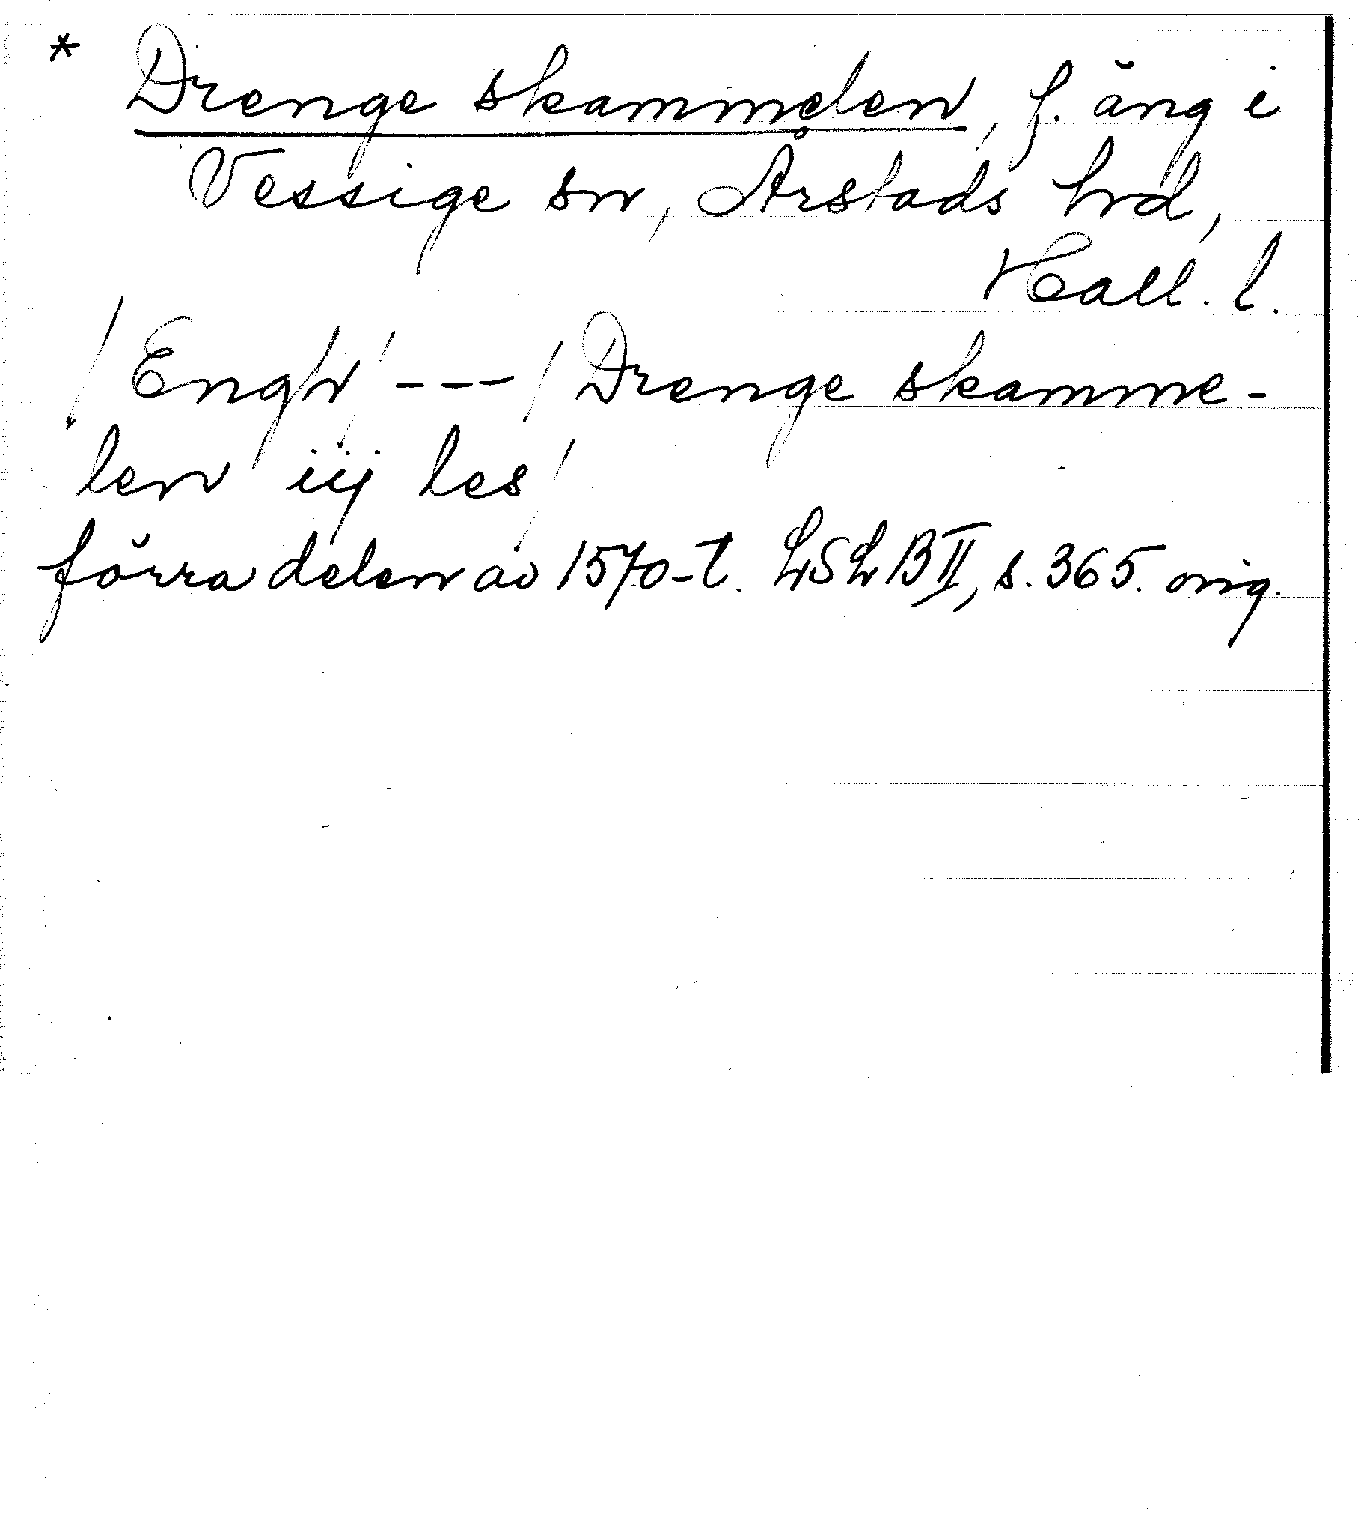 * Drenge skammelen, f. äng i
Vessige sn, Årstads hrd,
Hall. l.
/Engh/ --- /Drenge skamme-
len iij les/
förra delen av 1570-t. LSLB II, s. 365. orig.